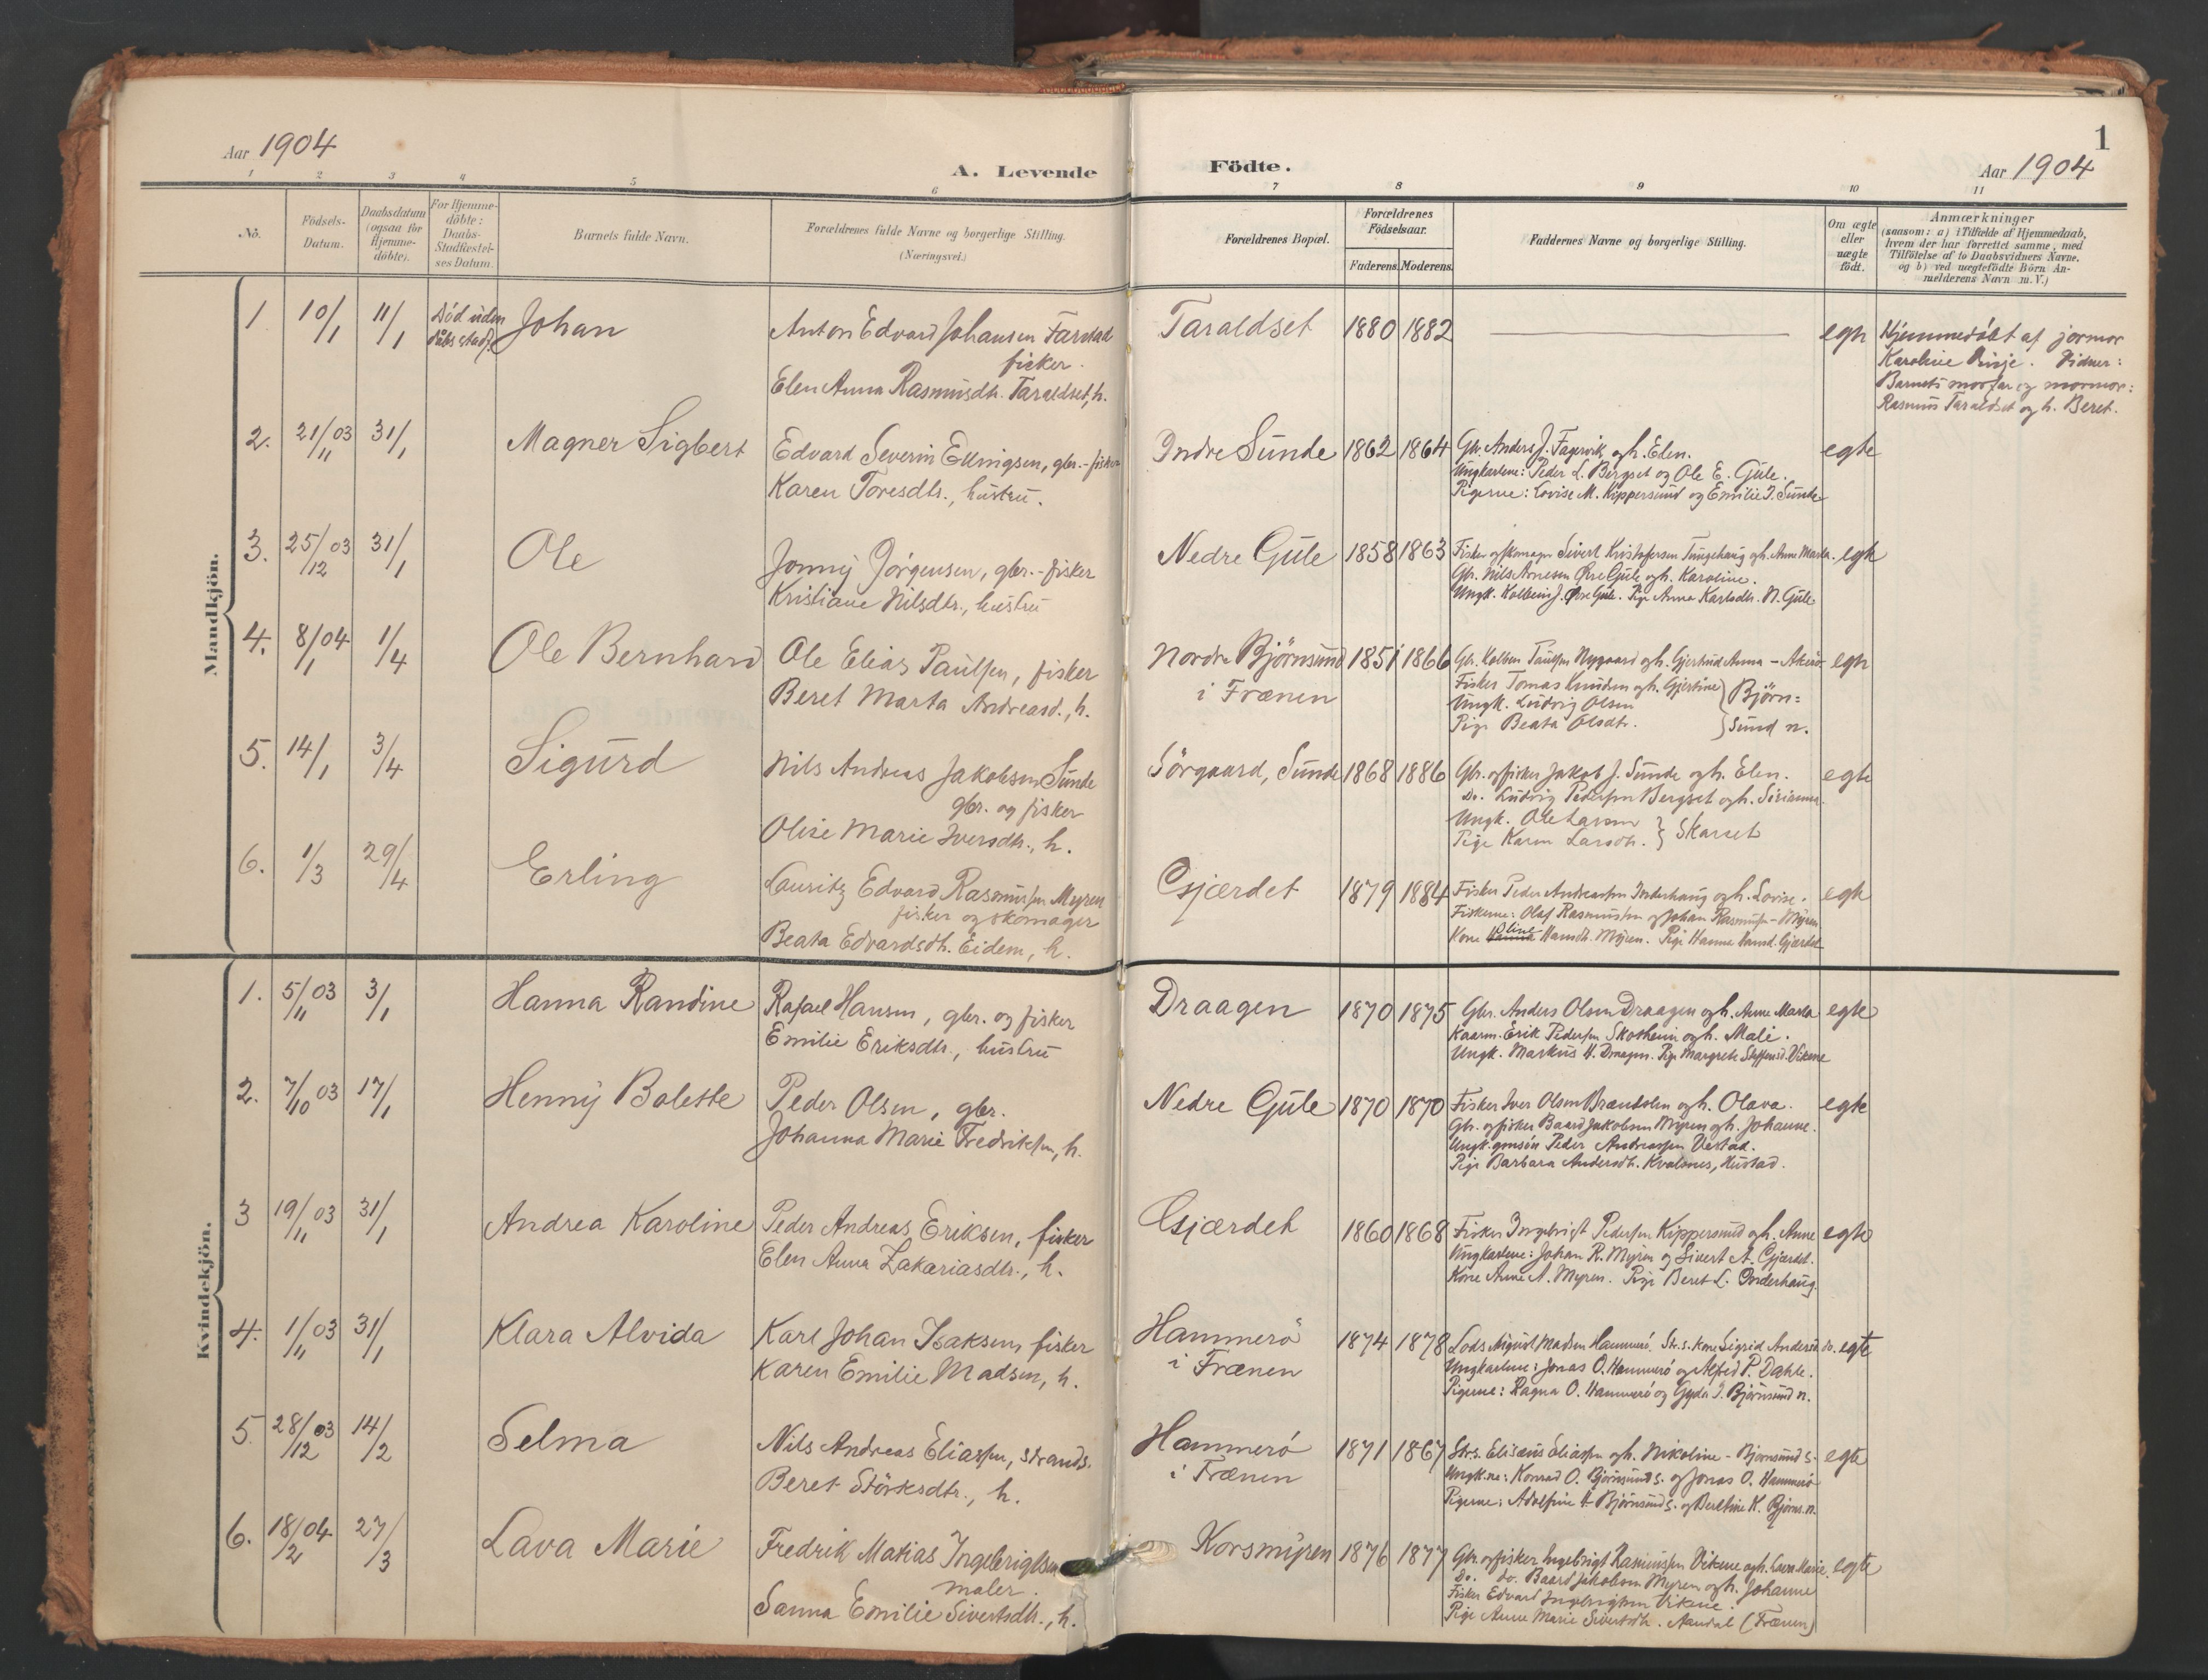 Aar 1904
A. Levende
1 2 3 4 5 6
Nö.
Födsels-Datum.
Daabsdatum (ogsaa for Hjemme-döbte).
For Hjemme-döbte: Daabs-Stadfæstel-ses Datum.
Barnets fulde Navn.
Forældrenes fulde Navne og borgerlige Stilling. (Næringsvei.)
Mandkjön.
1 10/1 11/1 Död uden Johan
Anton Edvard Johansen Farstad
fisker.
Elen Anna Rasmusdtr. Taraldset, h.
2. 21/11 03 31/1 Magner Sigbert
Edvard Severin Ellingsen, gbr.-fisker
Karen Toresdtr., hustru.
3. 25/12 03 31/1 Ole
Jonny Jörgensen, gbr.-fisker
Kristiane Nilsdtr., hustru
4. 8/1 04 1/4 Ole Bernhard
Ole Elias Paulsen, fisker
Beret Marta Andreasd., h.
5. 14/1 3/4 Sigurd
Nils Andreas Jakobsen Sunde
gbr. og fisker
Olise Marie Iversdtr., h.
6. 1/3 29/4 Erling
Lauritz Edvard Rasmussen Myren
fisker og skomager
Beata Edvardsdtr. Eidem, h.
Kvindekjön.
1. 5/11 03 3/1 Hanna Randine
Rafael Hansen, gbr. og fisker
Emilie Eriksdtr., hustru
2. 7/10 03 17/1 Henny Bolette
Peder Olsen, gbr.
Johanna Marie Fredriksen, h.
3 19/11 03 31/1 Andrea Karoline
Peder Andreas Eriksen, fisker
Elen Anna Zakariasdtr., h.
4. 1/11 03 31/1 Klara Alvida
Karl Johan Isaksen, fisker
Karen Emilie Madsen, h.
5. 28/12 03 14/2 Selma
Nils Andreas Eliassen, strands.
Beret Störksdtr., h.
6. 18/2 04 27/3 Lava Marie
Fredrik Matias Ingebrigtsen
maler.
Sanna Emilie Sivertsdtr., h.
1
Födte.
Aar 1904
7 8 9 10 11
Forældrenes Bopæl.
Forældrenes Födselsaar.
Faderens. Moderens.
Faddernes Navne og borgerlige Stilling.
Om ægte eller uægte födt.
Anmærkninger
(saasom: a) i Tilfælde af Hjemmedaab,
hvem der har forrettet samme, med
Tilföielse af to Daabsvidners Navne,
og b) ved uægtefödte Börn An-
melderens Navn m.V.)
Taraldset 1880 1882 egte
Hjemmedöbt af jormor
Karoline Vidner:
Barnets morfar og mormor:
Rasmus Taraldset og h. Beret.
Indre Sunde 1862 1864 Gbr. Anders J. Fagervik og h. Elen. egte
Ungkarlene: Peder L. Bergset og Ole E. Gule.
Pigerne: Lovise M. Kippersund og Emilie J. Sunde
Nedre Gule 1858 1863 Fisker og skomager Sivert Kristofersen Tungehaug og h. Anne Marta. egte
Gbr. Nils Arnesen Övre Gule og h. Karoline.
Ungk. Kolbein J. Övre Gule. Pige Anna Karlsdtr. N. Gule
Nordre Björnsund 1851 1866 Gbr. Kolben Paulsen Nygaard og h. Gjertrud Anna - Akerö egte
i Frænen Fisker Tomas Knudsen og h. Gjertine } Björn=
Ungk. Ludvig Olsen
Pige Beata Olsdtr. } sund n.
Sörgaard, Sunde 1868 1886 Gbr. og fisker Jakob J. Sunde og h. Elen. egte
Do. Ludvig Pedersen Bergset og h.
Ungk. Ole Larsen } Skarset
Pige Karen Larsdtr.
Gjærdet 1879 1884 Fisker Peder Andreassen Inderhaug og h. Lovise. egte
Fiskerne: Olaf Rasmussen og Johan Rasmussen - Myren
Kone Hansdtr. Myren. Pige Hanne Gjærdet
Draagen 1870 1875 Gbr. Anders Olsen Draagen og h. Anne Marta egte
Kaarm. Erik Pedersen Skotheim og h. Mali.
Ungk. Markus H. Draagen. Pige Margrete Steffensd. Vikene
Nedre Gule 1870 1870 Fisker Iver Olsen og h. Olava. egte
Gbr. og fisker Baard Jakobsen Myren og h. Johanne.
Ungk. Peder Andreassen Vestad.
Pige Barbara Andersdtr. Kvalsnes, Hustad.
Gjærdet 1860 1868 Fisker Ingebrigt Pedersen Kippersund og h. Anne egte
Ungkarlene: Johan R. Myren og Sivert A. Gjærdet.
Kone Anne A. Myren. Pige Beret L. Inderhaug.
Hammerö 1874 1878 Lods August Madsen Hammerö. Str.s. kone Sigrid Andersd. do. egte
i Frænen Ungkarlene: Jonas O. Hammerö og Alfred P. Dahle.
Pigerne: Ragna O. Hammerö og Gyda J. Björnsund n.
Hammerö 1871 1867 Strs. Elisæus Eliassen og h. Nikoline - Bjornsund s. egte
i Frænen Ungk.ne: Konrad O. Bjornsund s. og Jonas O. Hammerö
Pigerne: Adolfine H. Björnsund s. og Berthine K. Bjorns. n.
Korsmyren 1876 1877 Gbr. og fisker Ingebrigt Rasmussen Vikene og h. Lava Marie. egte
Do. do. Baard Jakobsen Myren og h. Johanne
Fisker Edvard Ingebrigtsen Vikene.
Pige Anne Marie Sivertsdtr. Aandal (Frænen)